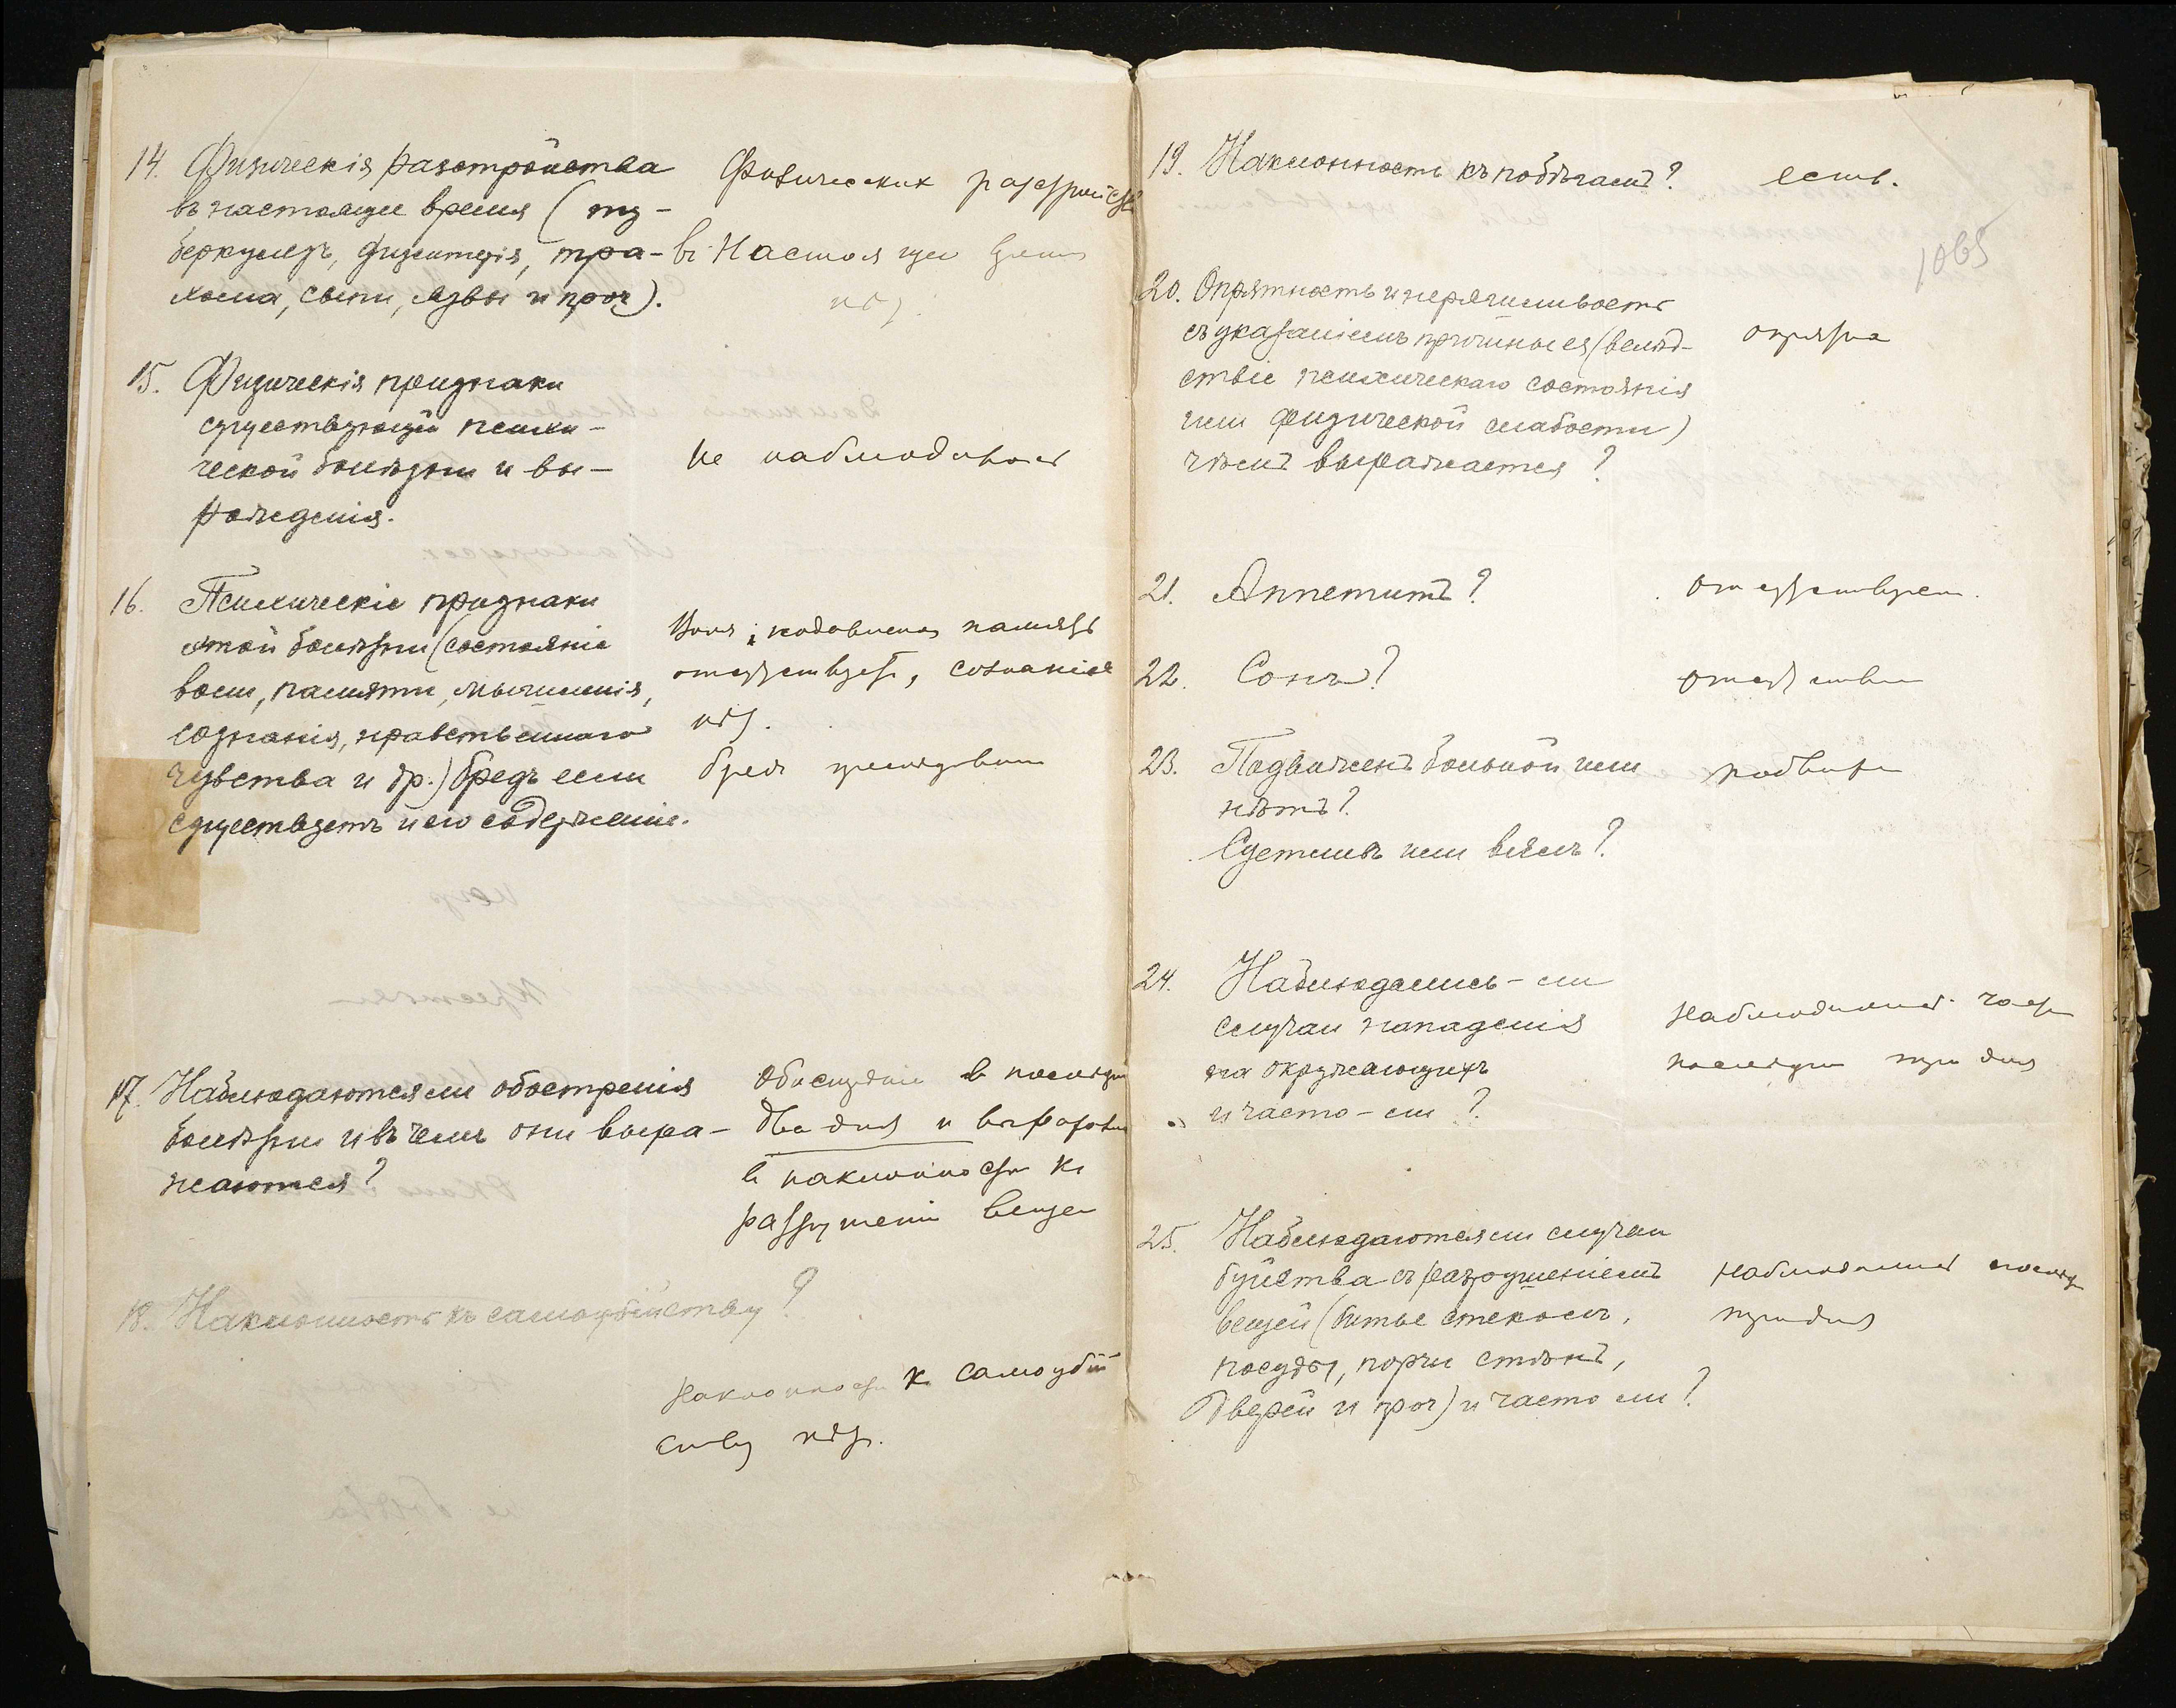 14. Физическія разстройства
въ настоящее время (ту-
беркулезъ, дизентерія, тра-
хома, сыпи, язвы и проч).
Физических расстройств
в настоящее время
нѣт.
15. Физическія признаки
существующей психи-
ческой болѣзни и вы-
рожденія.
не наблюдается
16. Психическіе признаки
этой болѣзни (состояніе
воли, памяти, мышленія,
сознанія, нравственнаго
чувства и др.) бредъ если
существуетъ и его содержаніе.
Воля подавлена память
отсутствует, сознание
нѣт.
бред
17. Наблюдаются ли обостренія
болѣзни и въ чемъ они выра-
жаются?
в последн
два дня и
в наклонности к
вещей
18. Наклонность къ самоубійству?
Наклонности к самоубий
ству нѣт.
19. Наклонность къ побѣгамъ?
есть.
1065
20. Опрятность и нерячливость
съ указаніемъ причины ея (вслѣд-
ствіе психическаго состоянія
или физической слабости)
чѣмъ выражается?
опрятна
21. Аппетитъ?
отсутствует.
22. Сонъ?
23. Подвиженъ больной или
нѣтъ?
Суетливъ или вялъ?
24. Наблюдались-ли
случаи нападенія
на окружающихъ
и часто-ли?
последние три дня
25. Наблюдаются ли случаи
буйства съ разрушеніемъ
вещей (битье стеколъ,
посуды, порчи стѣнъ,
дверей и проч) и часто ли?
три дня